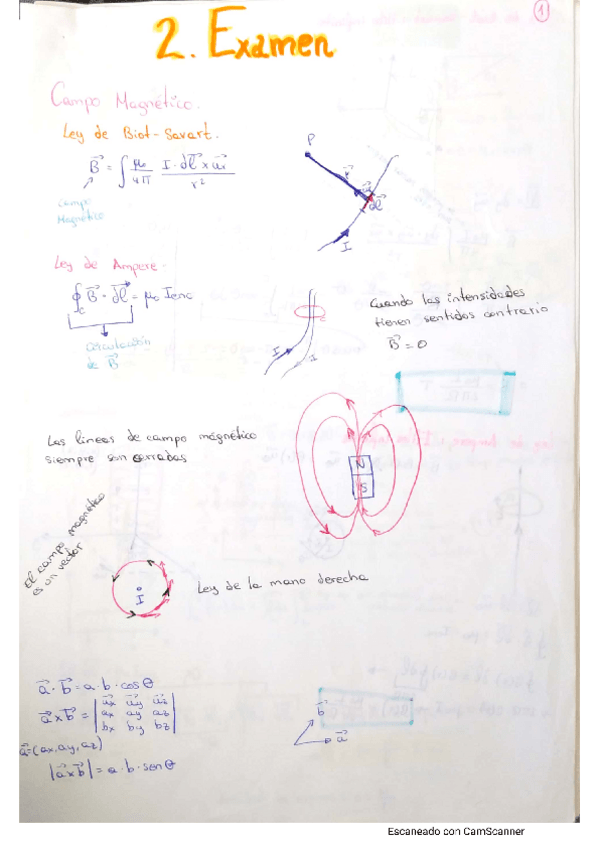 1
2. Examen
Campo Magnético.
Ley de Biot-Savart.
B⃗ = ∫ μ₀/4π I·dl⃗ x u⃗r / r²
Campo
Magnético
P
r
dl⃗
I
Ley de Ampere.
∮c B⃗ · dl⃗ = μ₀ Ienc
circulación
de B⃗
c
I
I
Cuando las intensidades
tienen sentidos contrario
B⃗ = 0
Las líneas de campo magnético
siempre son cerradas
N
S
El campo magnético
es un vector
I
Ley de la mano derecha
a⃗ · b⃗ = a · b · cos θ
a⃗ x b⃗ = | u⃗x u⃗y u⃗z |
ax ay az
bx by bz
a⃗ = (ax, ay, az)
|a⃗ x b⃗| = a · b · sen θ
b⃗
a⃗
Escaneado con CamScanner